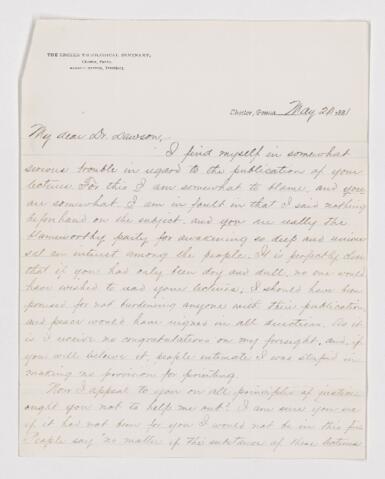 THE CROZER THEOLOGICAL SEMINARY,
Chester, Penna.
Chester, Penna. May 20 1881
My dear Dr. Dawson,
I find myself in somewhat
serious trouble in regard to the publication of your
lectures. For this I am somewhat to blame, and you
are somewhat. I am in fault in that I said nothing
beforehand on the subject, and you are really the
blameworthy party for awakening so deep and univer
sal an interest among the people. It is perfectly clear
that if you had only been dry and dull, no one would
have wished to read your lectures, I should have been
praised for not burdening anyone with their publication
and peace would have reigned in all directions. As it
is I receive no congratulations on my foresight, and, if
you will believe it, people intimate I was stupid in
making no provision for printing.
Now I appeal to you on all principles of justice
ought you not to help me out? I am sure you see
if it had not been for you I would not be in this fix
People say "no matter if the substance of these lectures